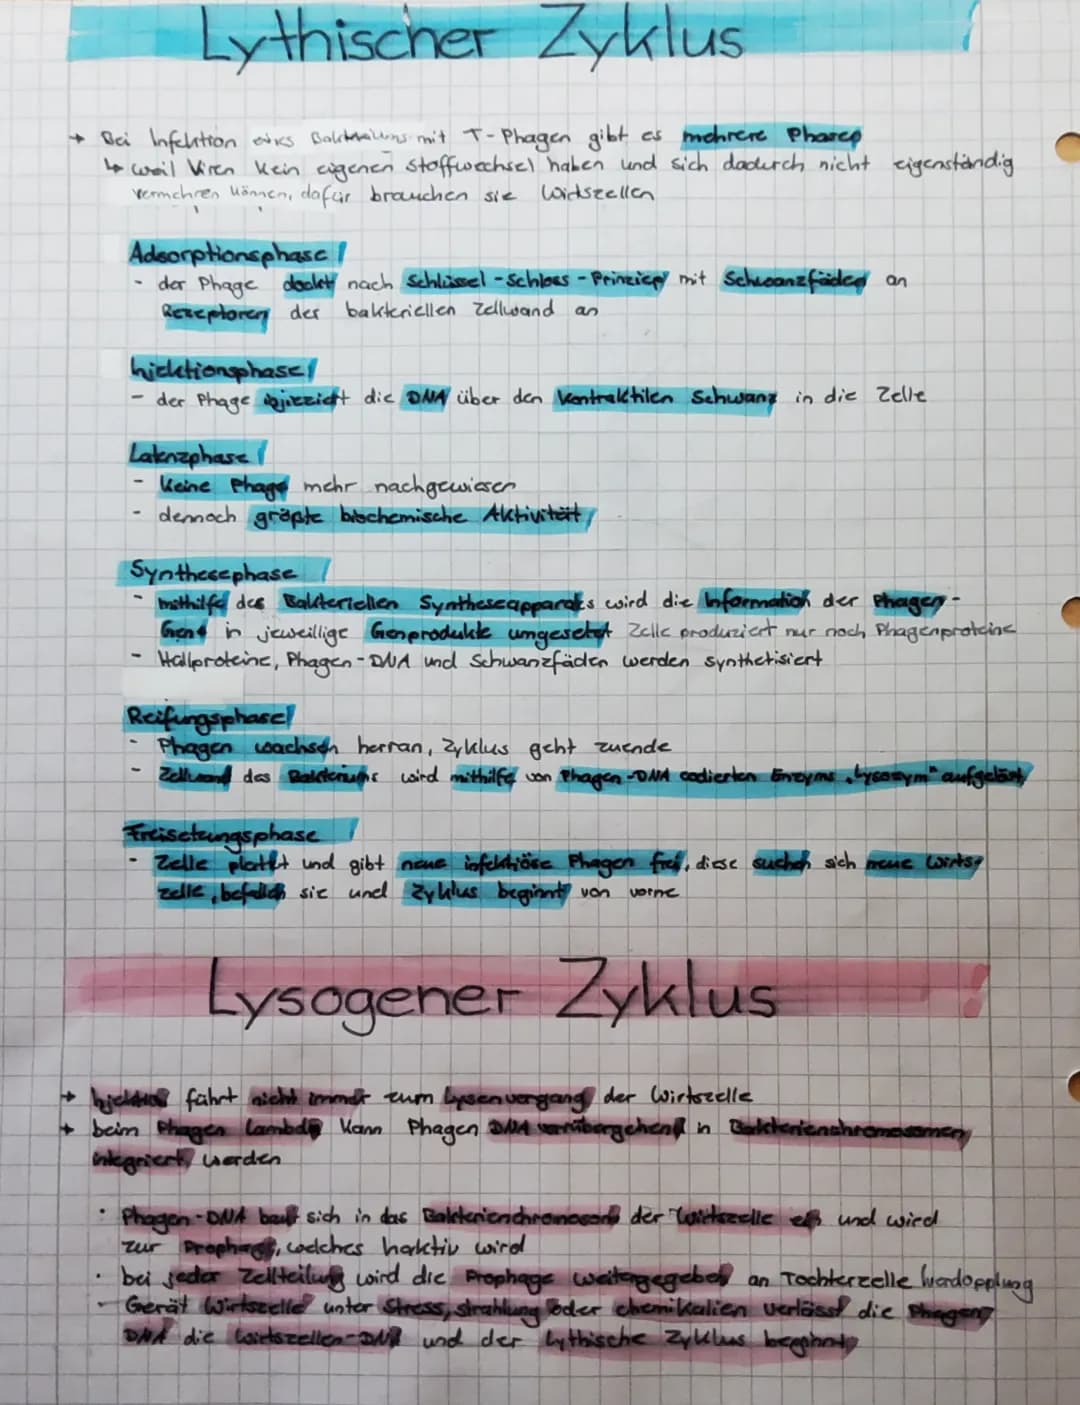 Lythischer Zyklus
→ Bei Infektion eines Bakteriums mit T-Phagen gibt es mehrere Phasen
↳ weil Viren kein eigenen Stoffwechsel haben und sich dadurch nicht eigenständig
vermehren können, dafür brauchen sie Wirtszellen
Adsorptionsphase
- der Phage dockt nach Schlüssel-Schloss-Prinziep mit Schwanzfäden an
Rezeptoren der bakteriellen Zellwand an
Injektionsphase
- der Phage injizziert die DNA über den kontraktilen Schwanz in die Zelle
Latenzphase
- keine Phage mehr nachgewiesen
- dennoch größte biochemische Aktivität
Synthesephase
- mithilfe des Bakteriellen Syntheseapparats wird die Information der Phagen-
Gene in jeweillige Genprodukte umgesetzt Zelle produziert nur noch Phagenproteine
- Hüllproteine, Phagen-DNA und Schwanzfäden werden synthetisiert
Reifungsphase
- Phagen wachsen herran, Zyklus geht zuende
- Zellwand des Bakteriums wird mithilfe von Phagen-DNA codierten Enzyms „Lysozym" aufgelöst
Freisetzungsphase
- Zelle platzt und gibt neue infektiöse Phagen frei, diese suchen sich neue Wirts-
zelle, befallen sie und Zyklus beginnt von vorne
Lysogener Zyklus
→ Injektion führt nicht immer zum Lysenvorgang der Wirtszelle
→ beim Phagen Lambda kann Phagen DNA vorrübergehend in Bakterienchromosomen
integriert werden
· Phagen-DNA baut sich in das Bakterienchromosom der Wirtszelle ein und wird
zur Prophage, welches Inaktiv wird
· bei jeder Zellteilung wird die Prophage weitergegeben an Tochterzelle Verdopplung
- Gerät Wirtszelle unter Stress, strahlung oder chemikalien verlässt die Phagen
DNA die Wirtszellen-DNA und der Lythische Zyklus beginnt